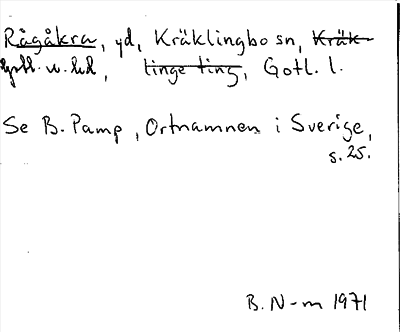 Rågåkra, yd, Kräklingbo sn, Kräk-
linge ting, Gotl. l.
Se B. Pamp, Ortnamnen i Sverige,
s. 25.
B. N-m 1971